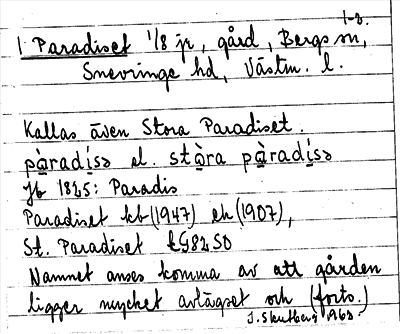 1-2.
1 Paradiset 1/8 jr, gård, Bergs sn,
Snevringe hd, Västm. l.
Kallas även Stora Paradiset.
pàradísə el. stòra pàradísə
Jb 1825: Paradis
Paradiset kb (1947) ek (1907),
St. Paradiset
Namnet anses komma av att gården
ligger mycket avlägset och (forts.)
J. Skutberg